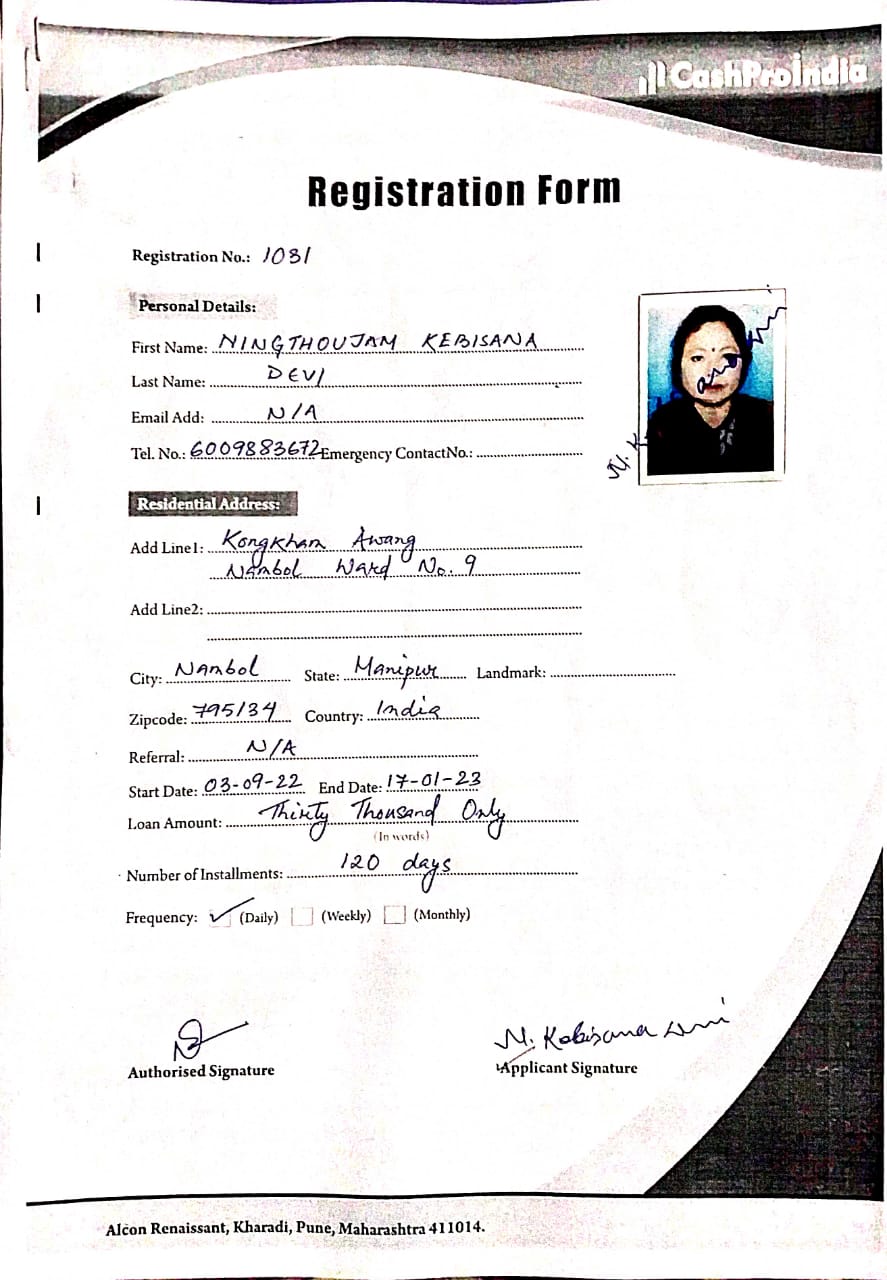 CashProIndia
Registration Form
Registration No.: 1031
Personal Details:
First Name: NINGTHOUJAM KEBISANA
Last Name: DEVI
Email Add: N/A
Tel. No.: 6009883672 Emergency ContactNo.:
Residential Address:
Add Line1: Kongkham Awang
Nambol Ward No. 9
Add Line2:
City: Nambol State: Manipur Landmark:
Zipcode: 795134 Country: India
Referral: N/A
Start Date: 03-09-22 End Date: 17-01-23
Loan Amount: Thirty Thousand Only
(In words)
Number of Installments: 120 days
Frequency: (Daily) (Weekly) (Monthly)
N. Kebisana Devi
Authorised Signature Applicant Signature
Alcon Renaissant, Kharadi, Pune, Maharashtra 411014.